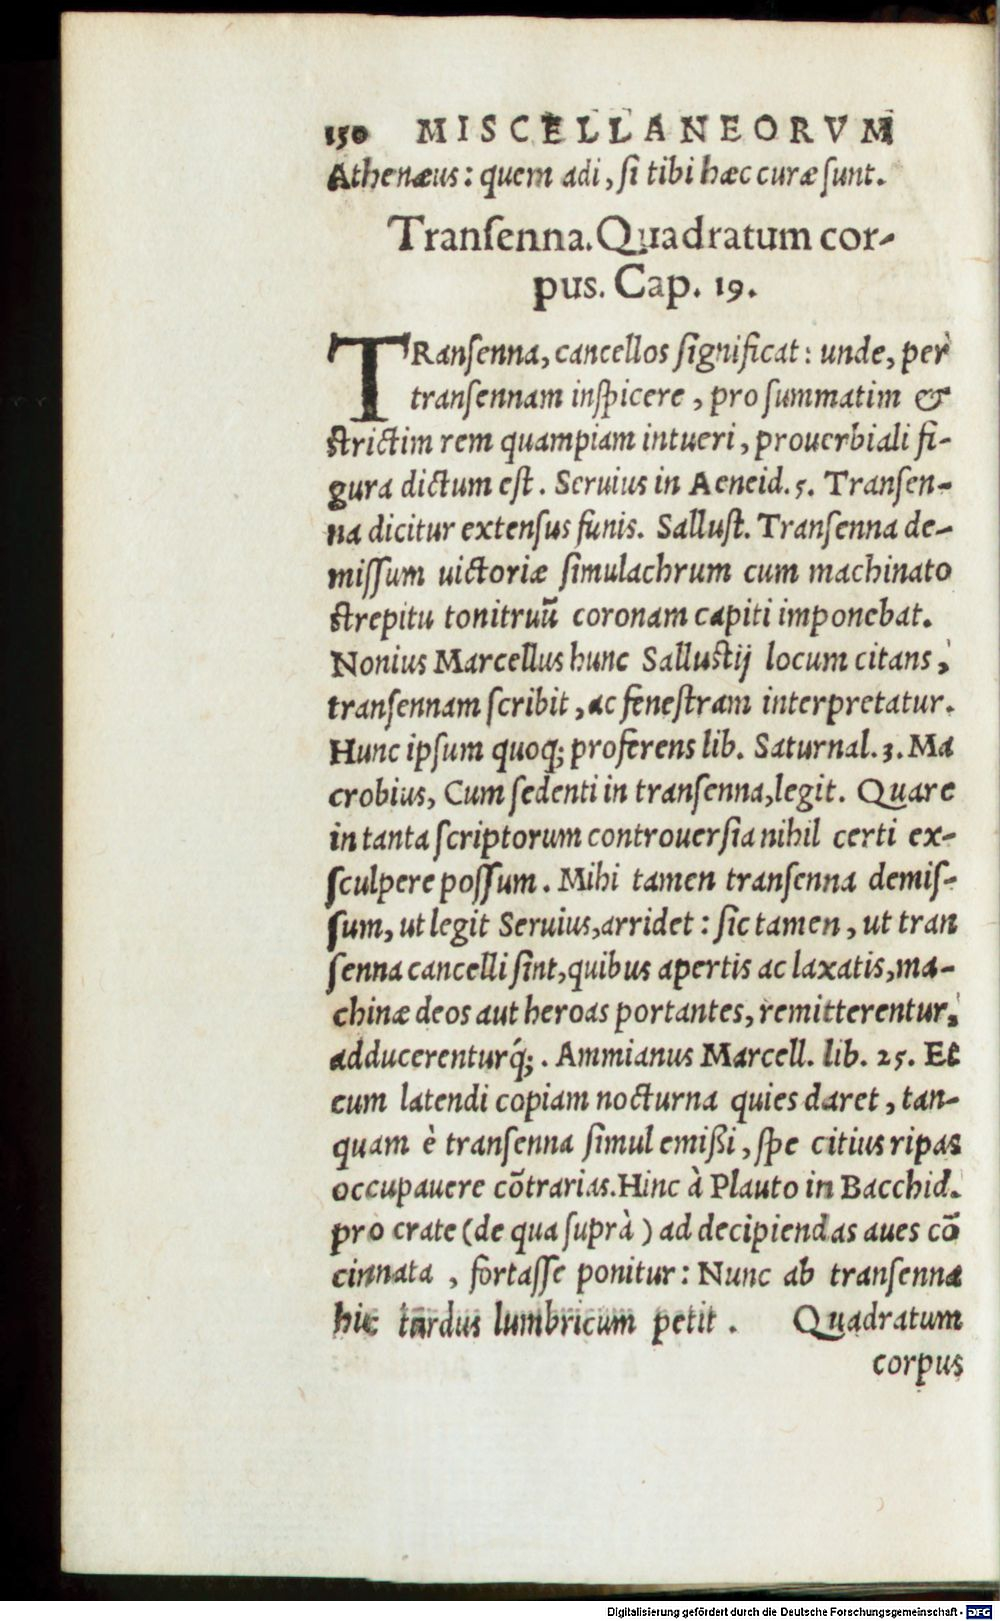 150 MISCELLANEORVM
Athenæus: quem adi, ſi tibi hæc curæ ſunt.
Tranſenna. Quadratum cor-
pus. Cap. 19.
TRanſenna, cancellos ſignificat: unde, per
tranſennam inſpicere, pro ſummatim &
ſtrictim rem quampiam intueri, prouerbiali fi-
gura dictum eſt. Seruius in Aeneid. 5. Tranſen-
na dicitur extenſus funis. Salluſt. Tranſenna de-
miſſum uictoriæ ſimulachrum cum machinato
ſtrepitu tonitruū coronam capiti imponebat.
Nonius Marcellus hunc Salluſtij locum citans,
tranſennam ſcribit, ac feneſtram interpretatur.
Hunc ipſum quoq; proferens lib. Saturnal. 3. Ma
crobius, Cum ſedenti in tranſenna, legit. Quare
in tanta ſcriptorum controuerſia nihil certi ex-
ſculpere poſſum. Mihi tamen tranſenna demiſ-
ſum, ut legit Seruius, arridet: ſic tamen, ut tran
ſenna cancelli ſint, quibus apertis ac laxatis, ma-
chinæ deos aut heroas portantes, remitterentur,
adducerenturq́;. Ammianus Marcell. lib. 25. Et
cum latendi copiam nocturna quies daret, tan-
quam è tranſenna ſimul emißi, ſpe citius ripas
occupauere cōtrarias. Hinc à Plauto in Bacchid.
pro crate (de qua ſuprà) ad decipiendas aues cō
cinnata, fortaſſe ponitur: Nunc ab tranſenna
hic turdus lumbricum petit. Quadratum
corpus
Digitalisierung gefördert durch die Deutsche Forschungsgemeinschaft - DFG